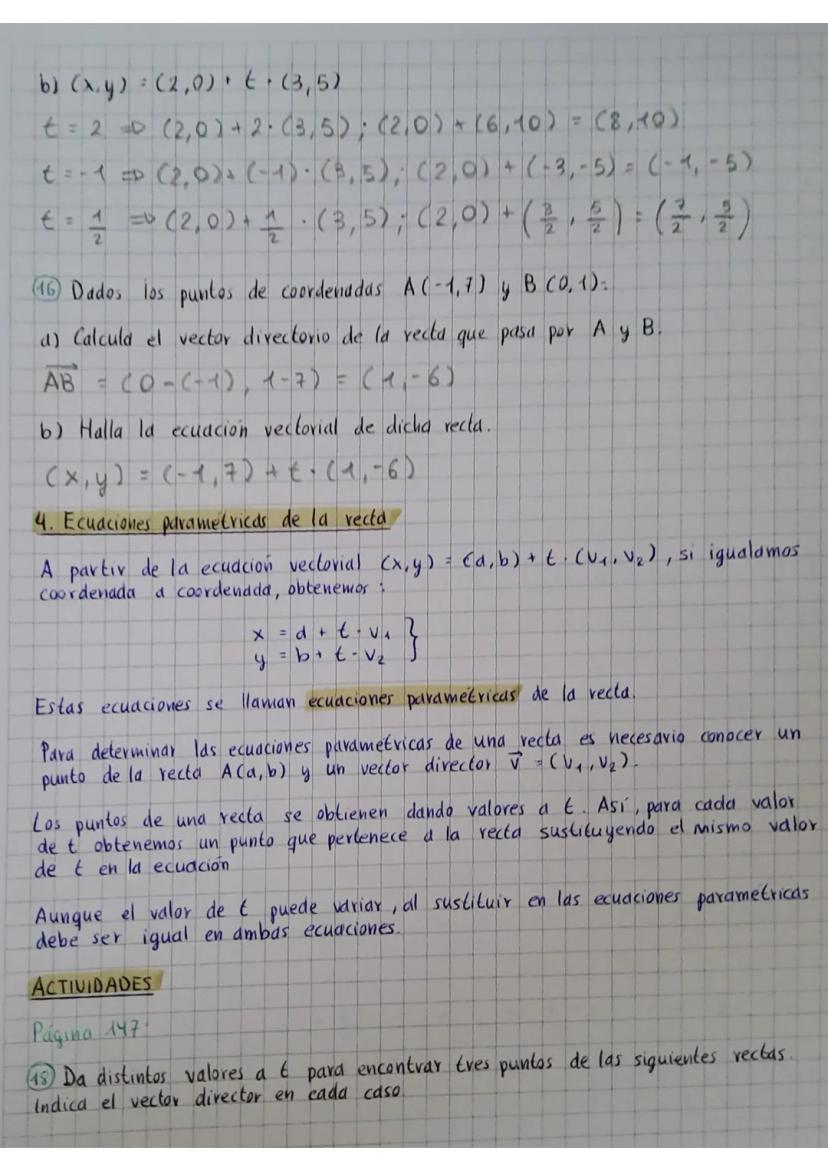 b) (x,y) = (2,0) · t · (3,5)
t = 2 ⇒ (2,0) + 2 · (3,5) ; (2,0) + (6,10) = (8,10)
t = -1 ⇒ (2,0) + (-1) · (3,5) ; (2,0) + (-3,-5) = (-1,-5)
t = 1/2 ⇒ (2,0) + 1/2 · (3,5) ; (2,0) + (3/2 , 5/2) = (7/2 , 5/2)
16 Dados los puntos de coordenadas A(-1,7) y B(0,1):
a) Calcula el vector directorio de la recta que pasa por A y B.
AB = (0-(-1), 1-7) = (1,-6)
b) Halla la ecuación vectorial de dicha recta.
(x,y) = (-1,7) + t · (1,-6)
4. Ecuaciones paramétricas de la recta
A partir de la ecuación vectorial (x,y) = (a,b) + t · (v₁, v₂), si igualamos
coordenada a coordenada, obtenemos :
x = a + t · v₁ }
y = b + t · v₂
Estas ecuaciones se llaman ecuaciones paramétricas de la recta.
Para determinar las ecuaciones paramétricas de una recta es necesario conocer un
punto de la recta A(a,b) y un vector director v⃗ = (v₁, v₂).
Los puntos de una recta se obtienen dando valores a t. Así, para cada valor
de t obtenemos un punto que pertenece a la recta sustituyendo el mismo valor
de t en la ecuación
Aunque el valor de t puede variar, al sustituir en las ecuaciones paramétricas
debe ser igual en ambas ecuaciones.
ACTIVIDADES
Página 147:
15 Da distintos valores a t para encontrar tres puntos de las siguientes rectas.
Indica el vector director en cada caso